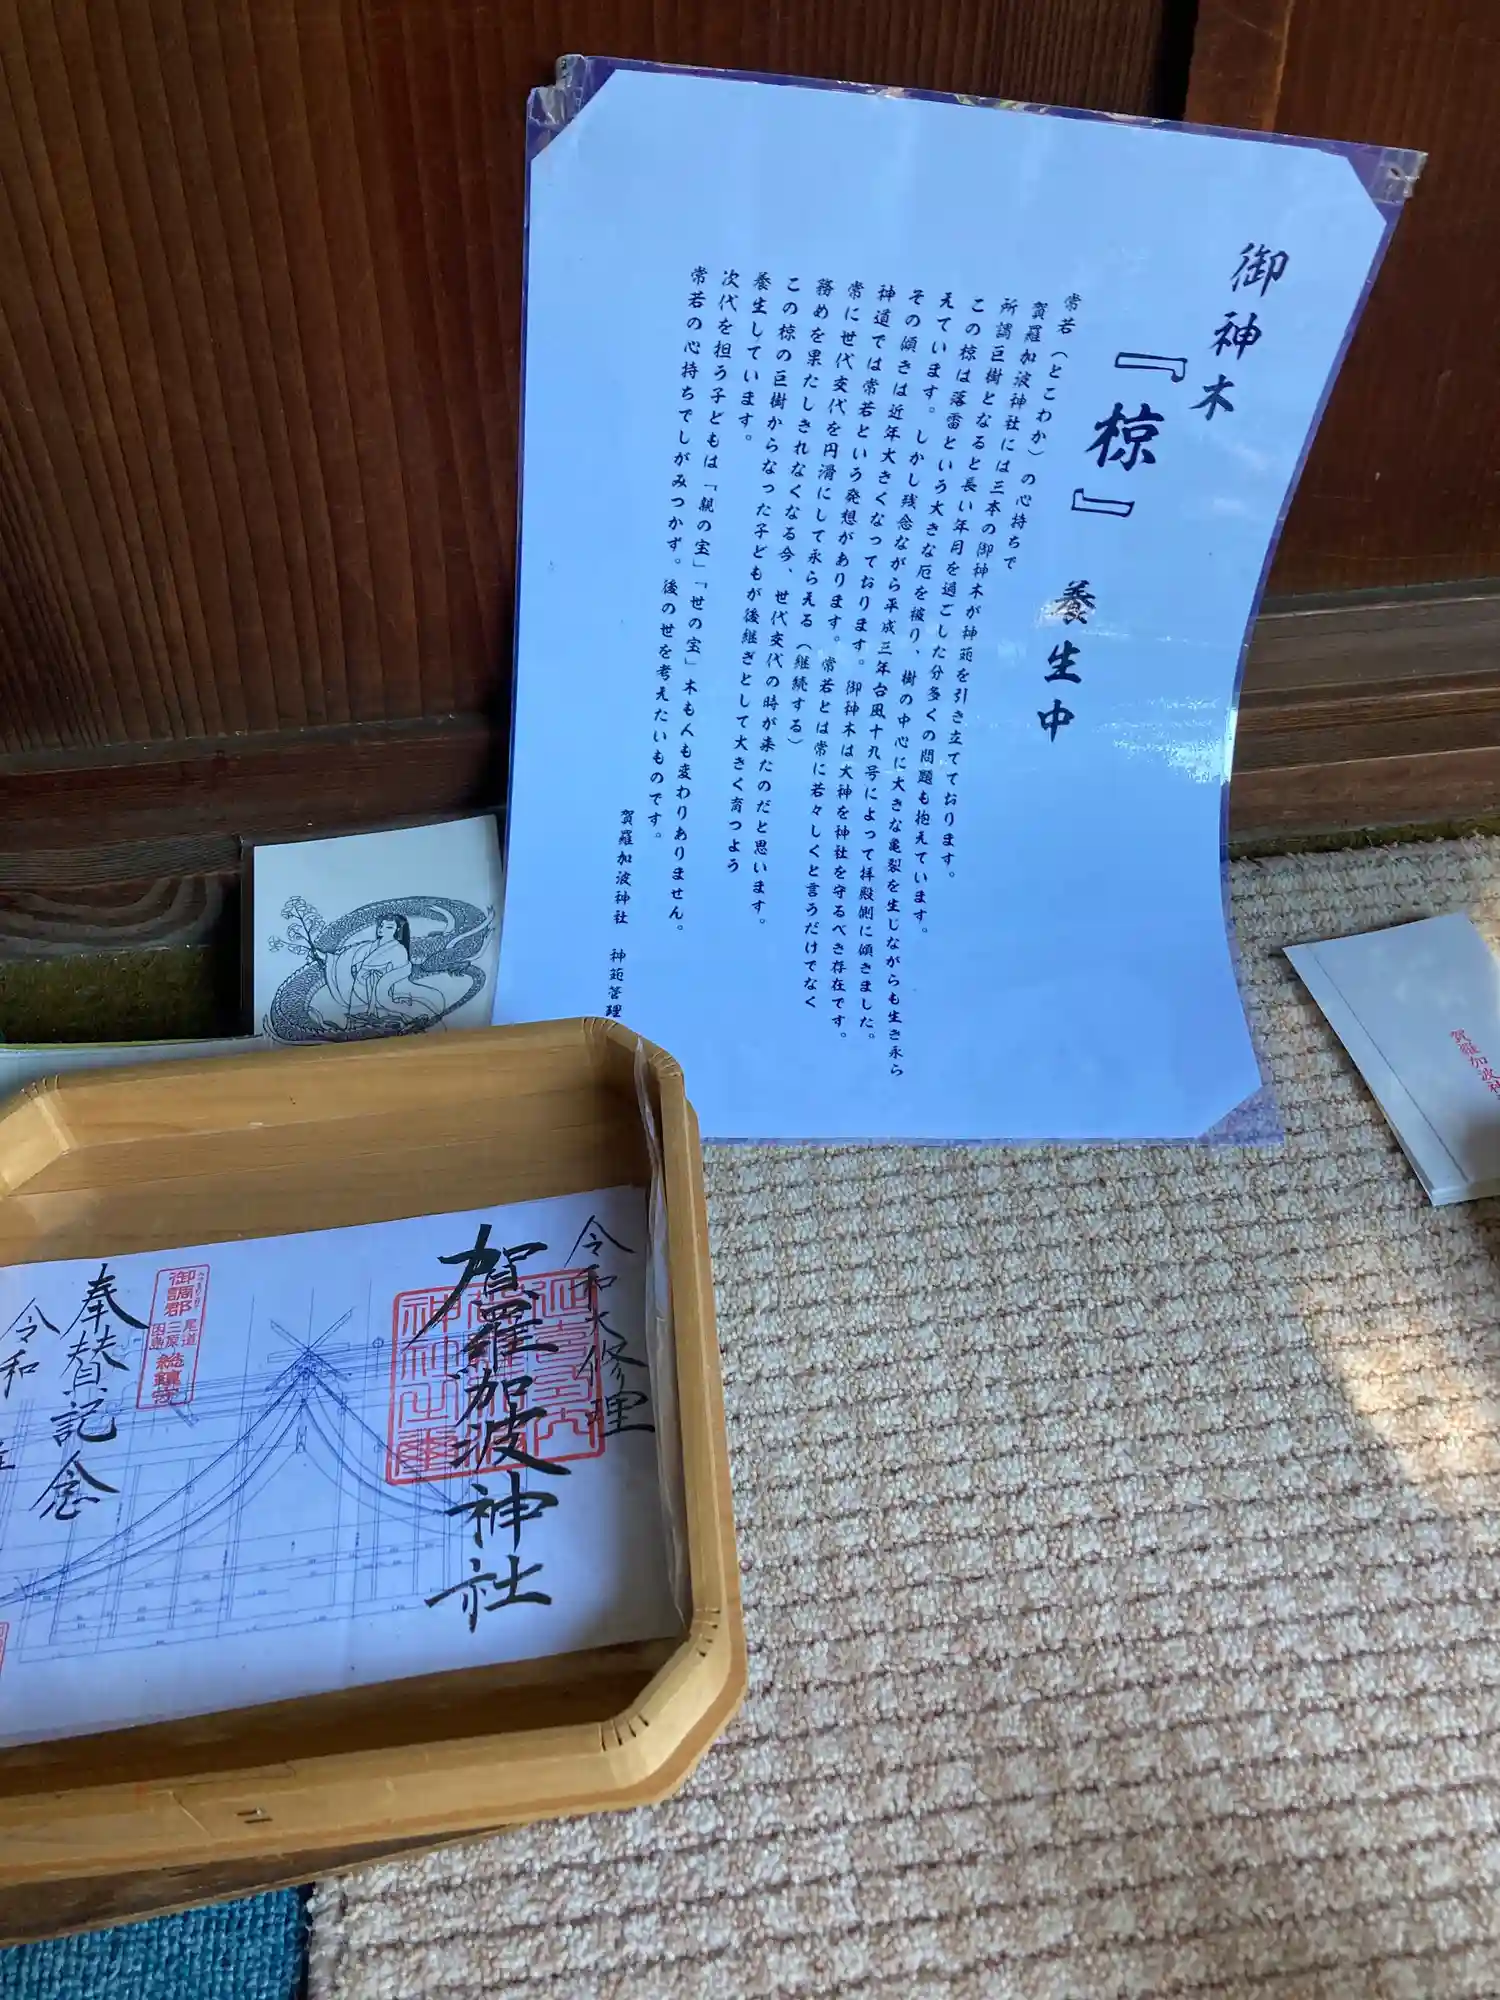 御神木
『椋』
養生中
常若(とこわか)の心持ちで
賀羅加波神社には三本の御神木が神苑を引き立てております。
所謂巨樹となると長い年月を過ごした分多くの問題も抱えています。
この椋は落雷という大きな厄を被り、樹の中心に大きな亀裂を生じながらも生き永ら
えています。しかし残念ながら平成三年台風十九号によって拝殿側に傾きました。
その傾きは近年大きくなっております。御神木は大神を神社を守るべき存在です。
神道では常若という発想があります。常若とは常に若々しくと言うだけでなく
常に世代交代を円滑にして永らえる(継続する)
務めを果たしきれなくなる今、世代交代の時が来たのだと思います。
この椋の巨樹からなった子どもが後継ぎとして大きく育つよう
養生しています。
次代を担う子どもは「親の宝」「世の宝」木も人も変わりありません。
常若の心持ちでしがみつかず。後の世を考えたいものです。
賀羅加波神社 神苑管理
令和大修理
賀羅加波神社
御調郡
尾道
三原
因島
総鎮守
奉賛記念
令和
賀羅加波神